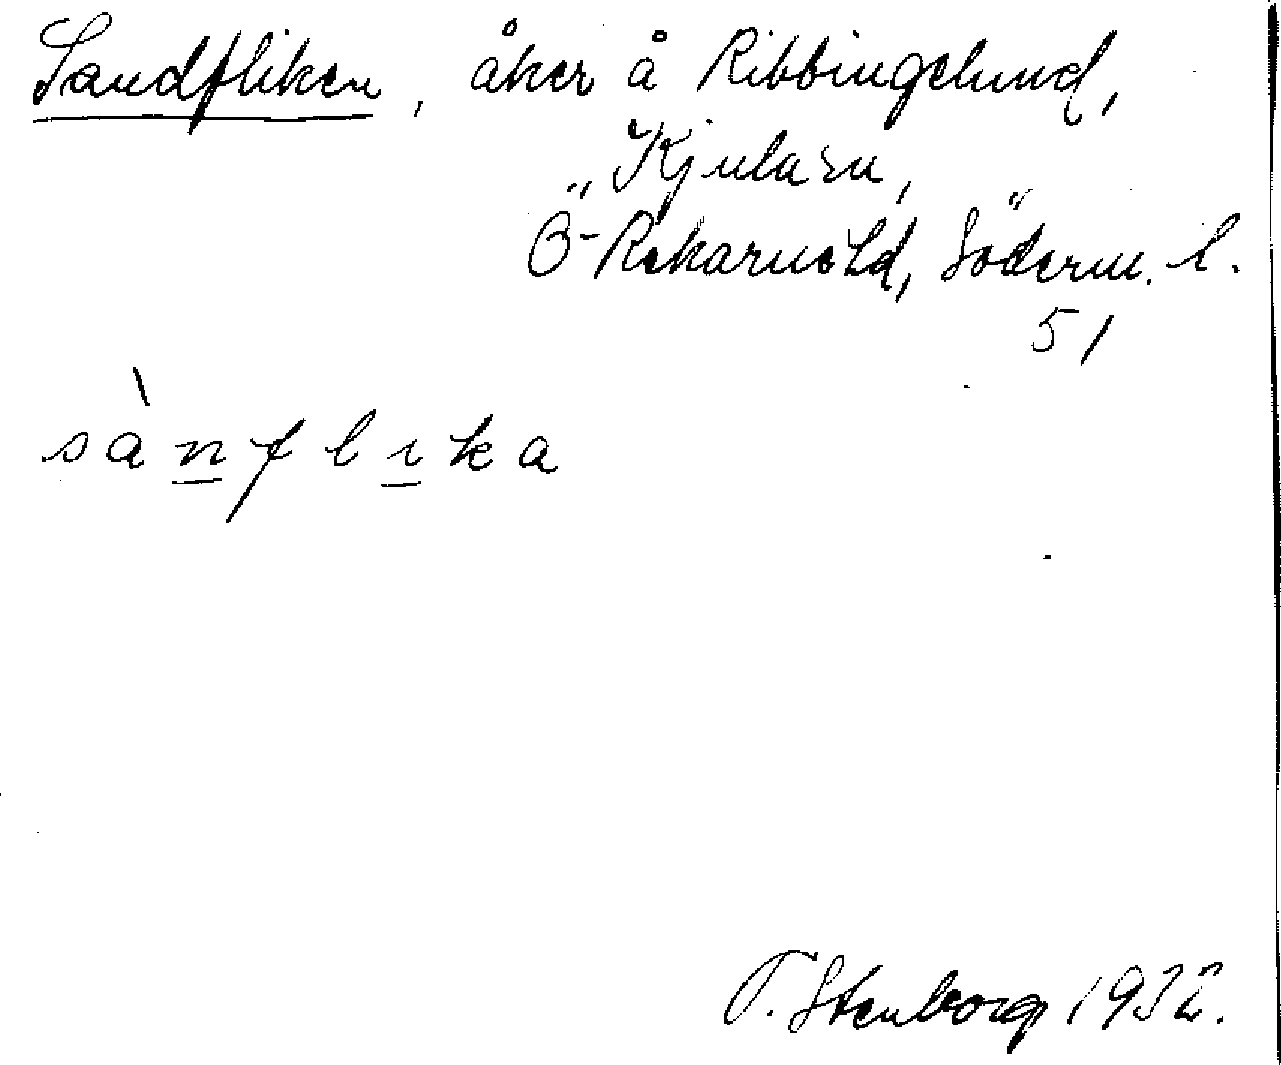 Sandfliken, åker å Ribbingelund,
Kjula sn,
Ö-Rekarne hd, Söderm. l.
51
sànflika
T. Stenborg 1932.